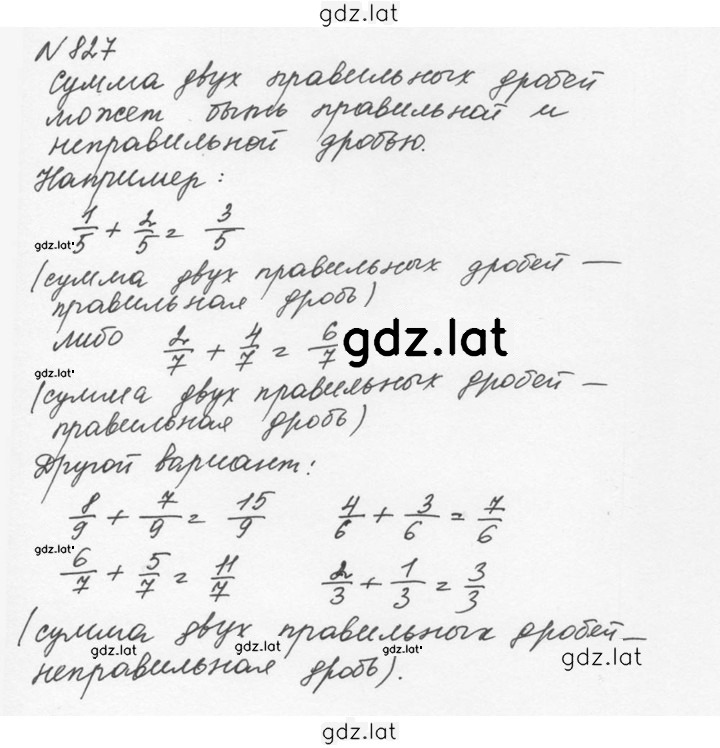 gdz.lat
N 827
Сумма двух правильных дробей
может быть правильной и
неправильной дробью.
Например:
1/5 + 2/5 = 3/5
gdz.lat
(сумма двух правильных дробей —
правильная дробь)
либо 2/7 + 4/7 = 6/7
gdz.lat
gdz.lat
(сумма двух правильных дробей —
правильная дробь)
Другой вариант:
8/9 + 7/9 = 15/9 4/6 + 3/6 = 7/6
gdz.lat
6/7 + 5/7 = 11/7 2/3 + 1/3 = 3/3
(сумма двух правильных дробей —
gdz.lat
gdz.lat
gdz.lat
неправильная дробь).
gdz.lat